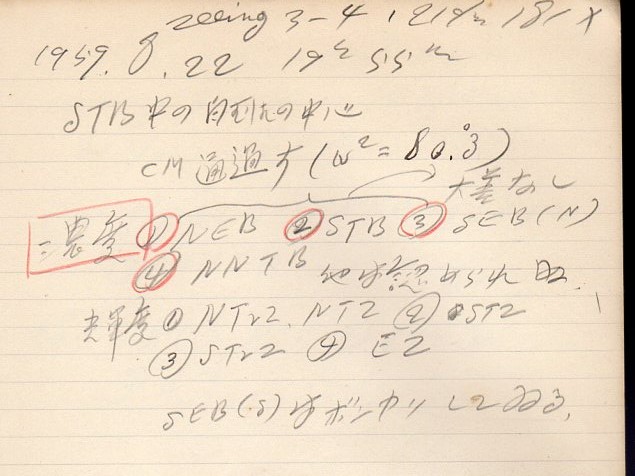 seeing 3-4, 21cm 181x
1959. 8. 22 19h 55m
STB中の白斑の中心
CM通過す (ω2= 80.°3)
大差なし
濃度 ① NEB ② STB ③ SEB(N)
④ NNTB 他は認められぬ.
光輝度 ① NTrZ. NTZ ② STZ
③ STrZ ④ EZ
SEB(S)はボンヤリしてゐる.